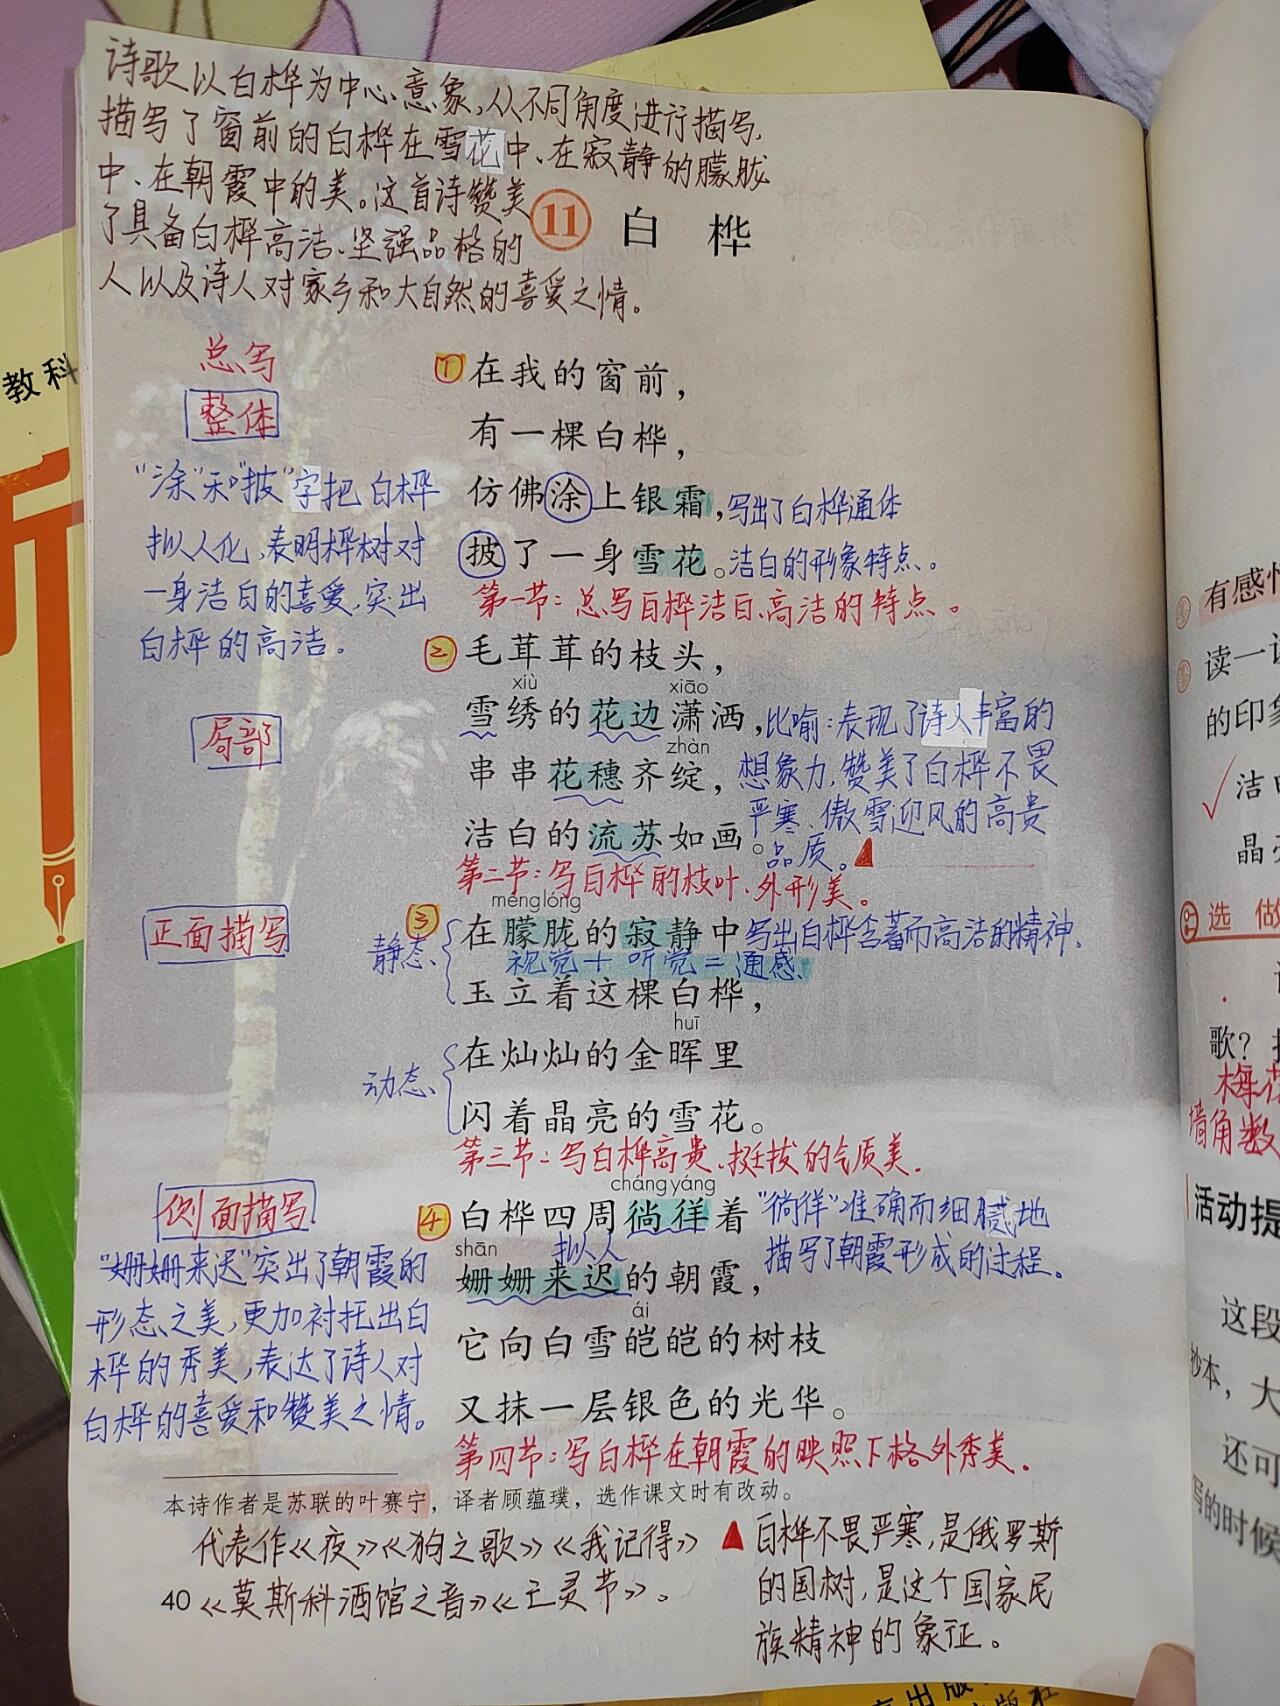 诗歌以白桦为中心意象,从不同角度进行描写,
描写了窗前的白桦在雪花中、在寂静的朦胧
中、在朝霞中的美。这首诗赞美
了具备白桦高洁、坚强品格的
人以及诗人对家乡和大自然的喜爱之情。
11 白桦
教科
总写
整体
①在我的窗前，
有一棵白桦，
仿佛涂上银霜，写出了白桦通体
披了一身雪花。洁白的形象特点。
第一节：总写白桦洁白、高洁的特点。
“涂”和“披”字把白桦
拟人化,表明桦树对
一身洁白的喜爱,突出
白桦的高洁。
局部
②毛茸茸的枝头，
xiù xiāo
雪绣的花边潇洒，比喻：表现了诗人丰富的
zhàn
串串花穗齐绽，想象力,赞美了白桦不畏
严寒、傲雪迎风的高贵
洁白的流苏如画。品质。▲
第二节：写白桦的枝叶、外形美。
méng lóng
正面描写
③静态
在朦胧的寂静中 写出白桦含蓄而高洁的精神.
视觉+听觉=通感.
玉立着这棵白桦，
huī
动态
在灿灿的金晖里
闪着晶亮的雪花。
第三节：写白桦高贵、挺拔的气质美.
cháng yáng
侧面描写
④白桦四周徜徉着 “徜徉”准确而细腻地
shān 拟人 描写了朝霞形成的过程。
姗姗来迟的朝霞，
ái
它向白雪皑皑的树枝
又抹一层银色的光华。
第四节：写白桦在朝霞的映照下格外秀美.
“姗姗来迟”突出了朝霞的
形态之美,更加衬托出白
桦的秀美,表达了诗人对
白桦的喜爱和赞美之情。
本诗作者是苏联的叶赛宁，译者顾蕴璞，选作课文时有改动。
代表作《夜》《狗之歌》《我记得》
《莫斯科酒馆之音》《亡灵节》。
40
▲白桦不畏严寒,是俄罗斯
的国树,是这个国家民
族精神的象征。
有感情
读一
的印象
洁白
晶亮
选 做
歌?
梅花
墙角数
活动提
这段
抄本，大
还可
写的时候
出版